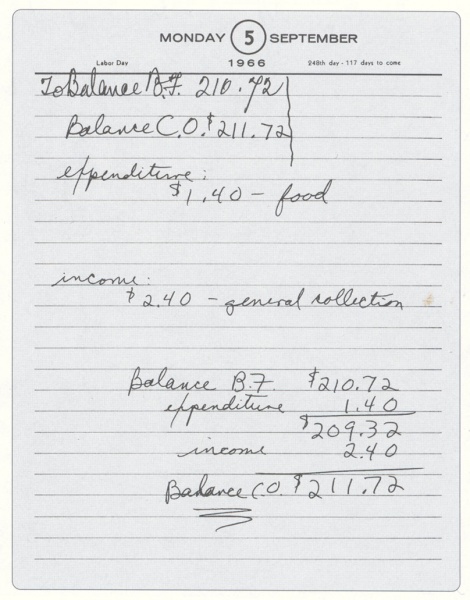 MONDAY 5 SEPTEMBER
Labor Day 1966 248th day - 117 days to come
To Balance B.F. 210.72
Balance C.O. $211.72
expenditure:
$1.40 - food
income:
$2.40 - general collection
Balance B.F. $210.72
expenditure 1.40
$209.32
income 2.40
Balance C.O. $211.72